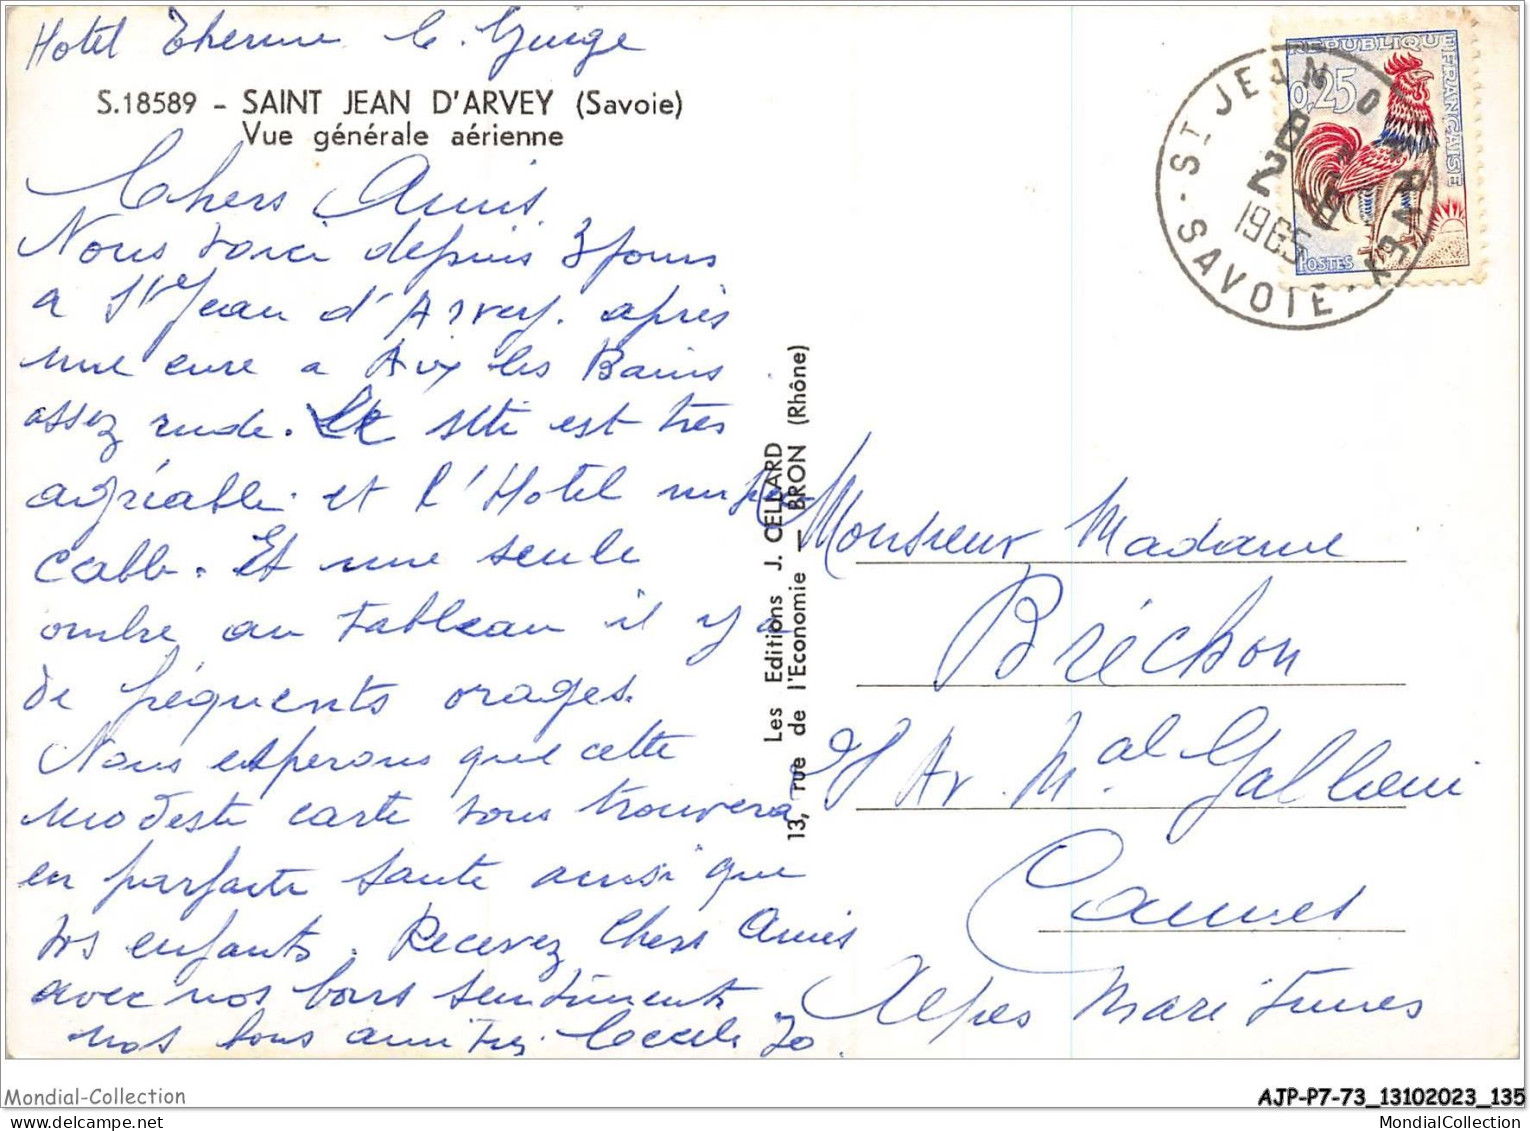 Hotel Therme
S.18589 - SAINT JEAN D'ARVEY (Savoie)
Vue générale aérienne
Chers Amis.
Nous voici depuis 3 jours
a St Jean d'Arvey. après
une cure a Aix les Bains
assez rude. Le site est très
agréable. et l'Hotel impec
cable. Et une seule
ombre au tableau il y a
de fréquents orages.
Nous esperons que cette
modeste carte vous trouvera
en parfaite sante ainsi que
vos enfants. Recevez Chers Amis
avec nos bons sentiments
nos bons amities. Zo.
Les Editions J. CELLARD
13, rue de l'Economie — BRON (Rhône)
REPUBLIQUE FRANÇAISE
0,25
POSTES
ST JEAN D'ARVEY - SAVOIE -
1965
Monsieur Madame
Bréchon
Av. Mal Gallieni
Cannes
Alpes Maritimes
Mondial-Collection
AJP-P7-73_13102023_135
MondialCollection